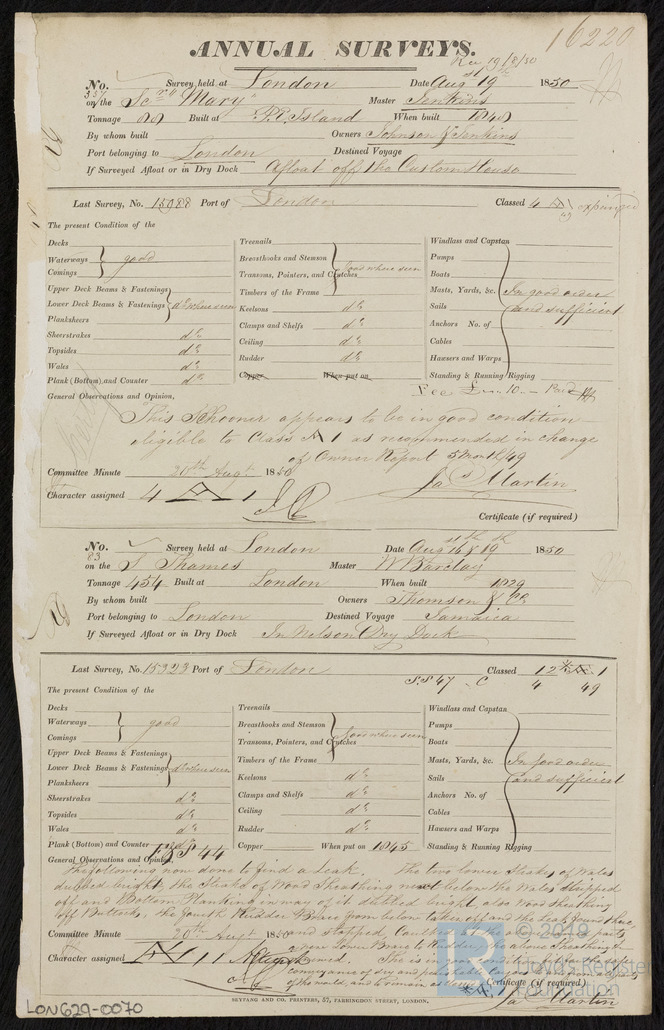 16220
ANNUAL SURVEYS.
Rec 19/8/50
No. Survey held at London Date Aug 19th 1850
on the Scnr Mary Master Jenkins
Tonnage 88 Built at P.E. Island When built 1848
By whom built Owners Johnson & Jenkins
Port belonging to London Destined Voyage
If Surveyed Afloat or in Dry Dock Afloat off the Custom House
Last Survey, No. 15088 Port of London Classed 4 A 1 expired
49
The present Condition of the
Decks
Waterways good
Comings
Upper Deck Beams & Fastenings
Lower Deck Beams & Fastenings do where seen
Planksheers
Sheerstrakes do
Topsides do
Wales do
Plank (Bottom) and Counter do
Treenails
Breasthooks and Stemson
Transoms, Pointers, and Crutches good where seen
Timbers of the Frame
Keelsons do
Clamps and Shelfs do
Ceiling do
Rudder do
Copper When put on
Windlass and Capstan
Pumps
Boats
Masts, Yards, &c. In good order
Sails and sufficient
Anchors No. of
Cables
Hawsers and Warps
Standing & Running Rigging
General Observations and Opinion, Fee £ 10 Paid
This Schooner appears to be in good condition
eligible to Class A 1 as recommended in change
of Owner Report
Committee Minute 20th Augt 1850 Jas Martin
Character assigned 4 A 1
Certificate (if required)
No. Survey held at London Date Aug 16th & 19th 1850
83
on the S Thames Master W Barclay
Tonnage 454 Built at London When built 1829
By whom built Owners Thomson & Co
Port belonging to London Destined Voyage Jamaica
If Surveyed Afloat or in Dry Dock In Nelson Dry Dock
Last Survey, No. 15323 Port of London Classed 12 A 1
S.S 47 C 4 49
The present Condition of the
Decks
Waterways good
Comings
Upper Deck Beams & Fastenings
Lower Deck Beams & Fastenings do where seen
Planksheers
Sheerstrakes do
Topsides do
Wales do
Plank (Bottom) and Counter do
Treenails
Breasthooks and Stemson
Transoms, Pointers, and Crutches good where seen
Timbers of the Frame
Keelsons do
Clamps and Shelfs do
Ceiling do
Rudder do
Copper When put on 1845
Windlass and Capstan
Pumps
Boats
Masts, Yards, &c. In good order
Sails and sufficient
Anchors No. of
Cables
Hawsers and Warps
Standing & Running Rigging
General Observations and Opinion, 44
The following now done to find a Leak. The two lower Strakes of Wales
dubbed bright, the Strake of Wood Sheathing next below the Wales stripped
off and Bottom Planking in way of it dubbed bright, also Wood Sheathing
off Buttocks, the fourth Rudder Brace from below taken off and the Leak found there,
and stopped, Caulked
Committee Minute 20th Augt 1850
Character assigned
Certificate (if required)
Jas Martin
SEYFANG AND CO. PRINTERS, 57, FARRINGDON STREET, LONDON.
LON629-0070
© 2019
Lloyd's Register
Foundation